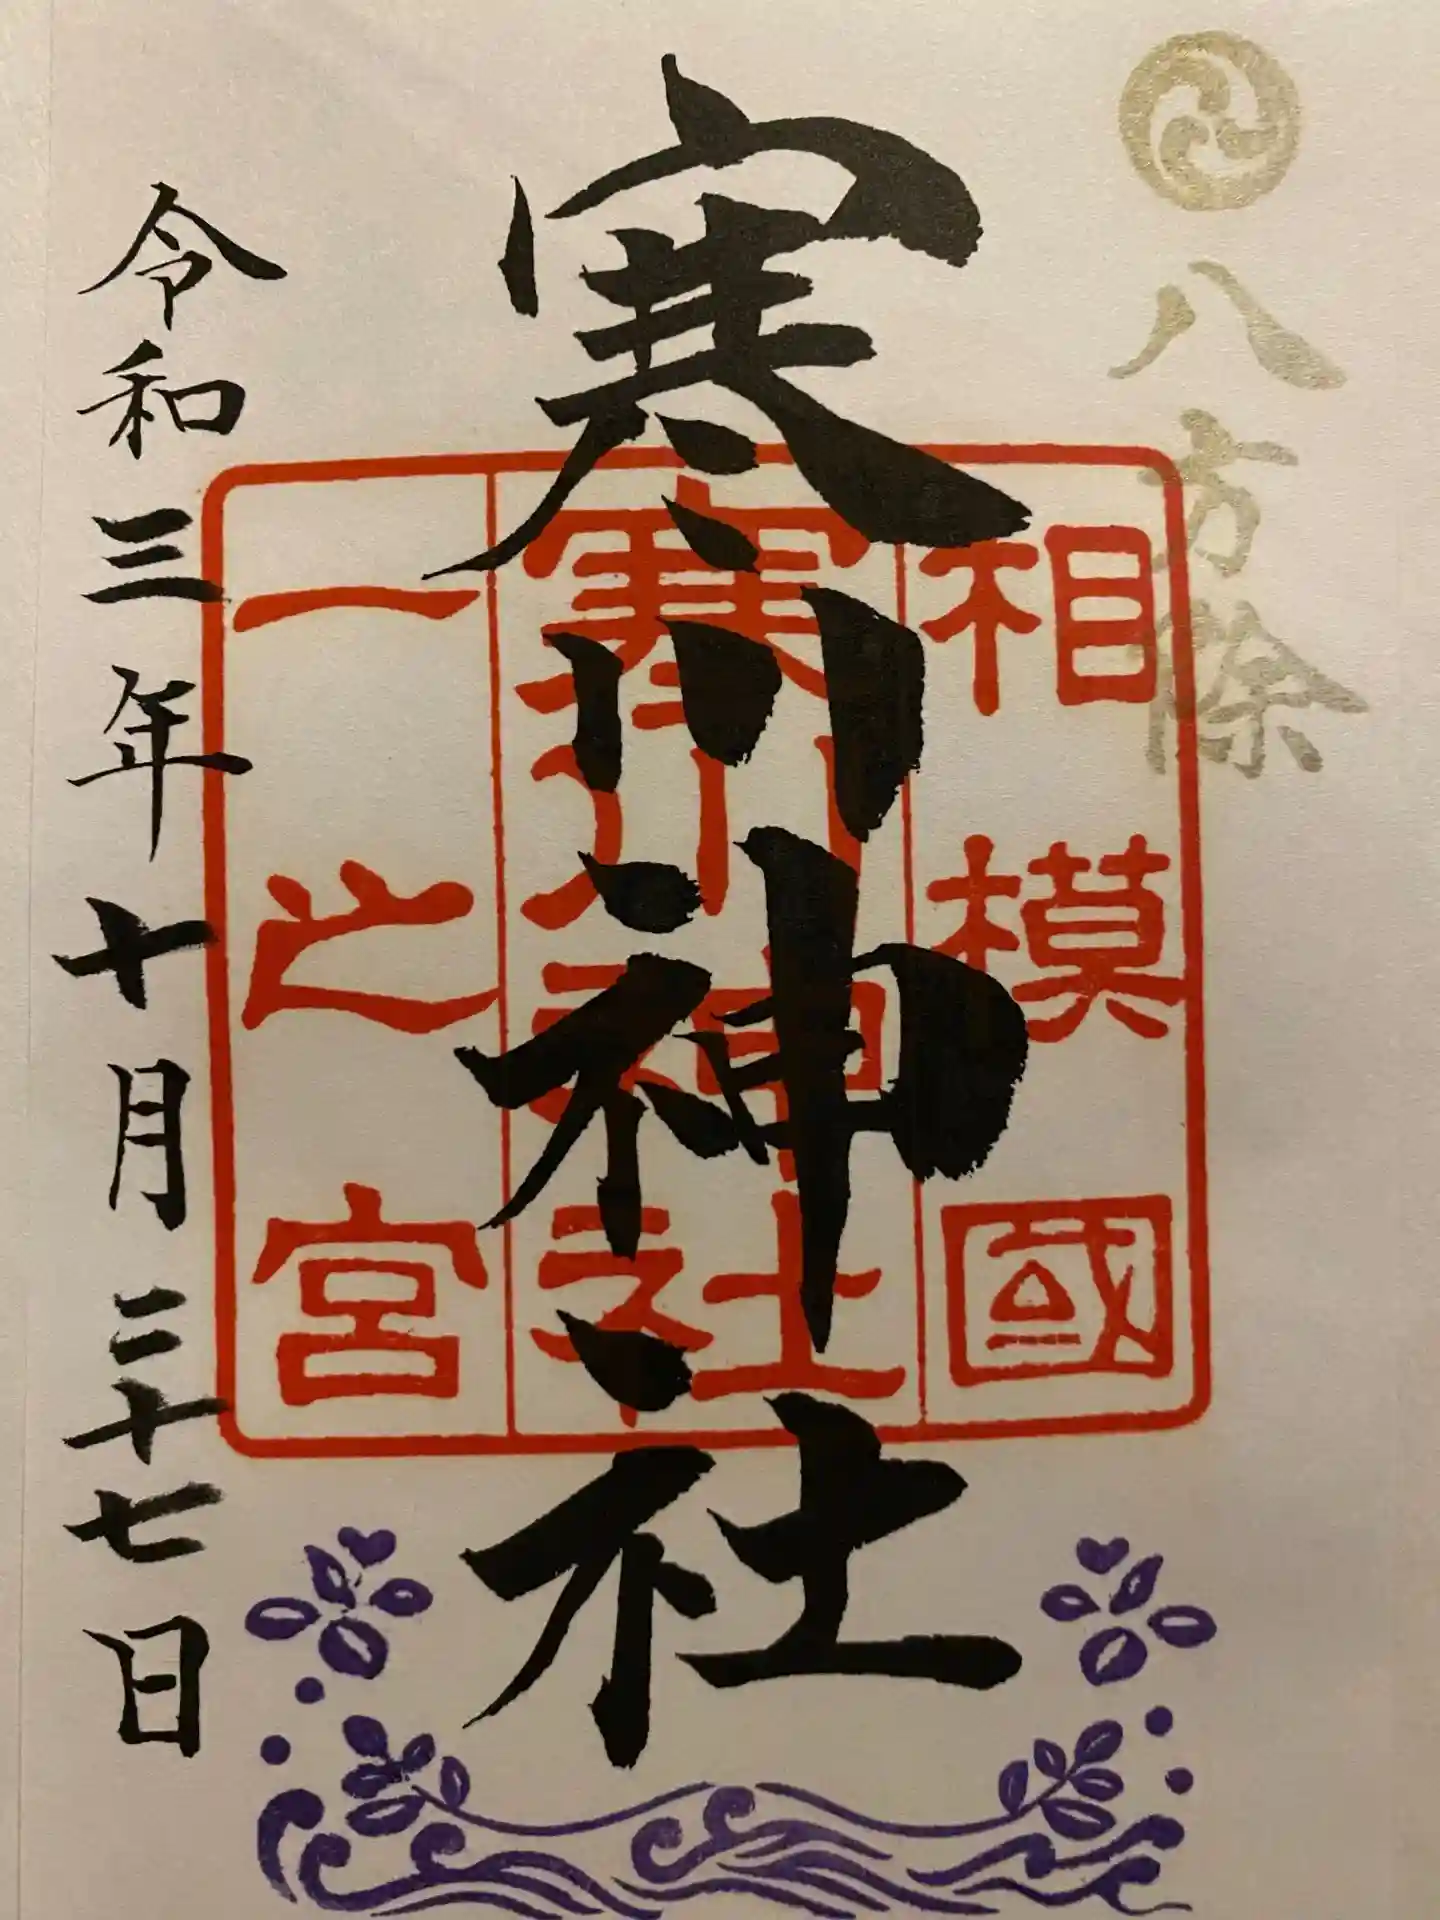 八方除
寒川神社
相模國
寒川神社
一之宮
令和三年十月二十七日